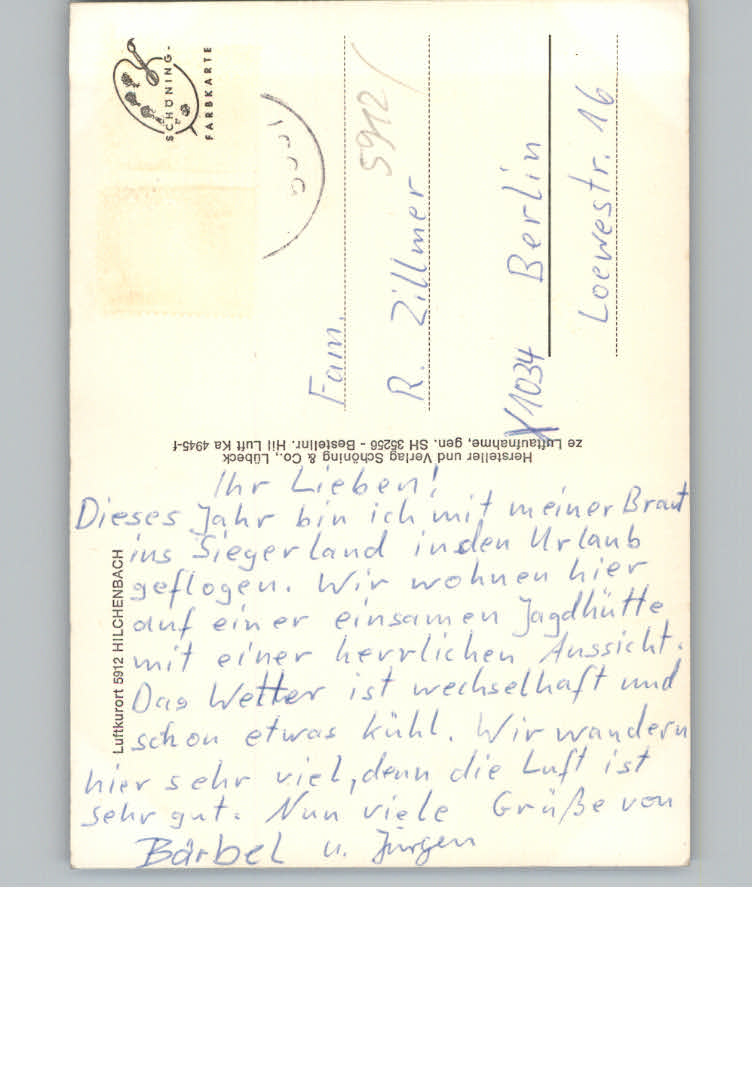 SCHÖNING-
FARBKARTE
5912/
Fam.
R. Zillmer
X1034 Berlin
Loewestr. 16
Hersteller und Verlag Schöning & Co., Lübeck
ze Luftaufnahme, gen. SH 35256 - Bestellnr. Hil Luft Ka 4945-f
Luftkurort 5912 HILCHENBACH
Ihr Lieben!
Dieses Jahr bin ich mit meiner Braut
ins Siegerland in den Urlaub
geflogen. Wir wohnen hier
auf einer einsamen Jagdhütte
mit einer herrlichen Aussicht.
Das Wetter ist wechselhaft und
schon etwas kühl. Wir wandern
hier sehr viel, denn die Luft ist
sehr gut. Nun viele Grüße von
Bärbel u. Jürgen